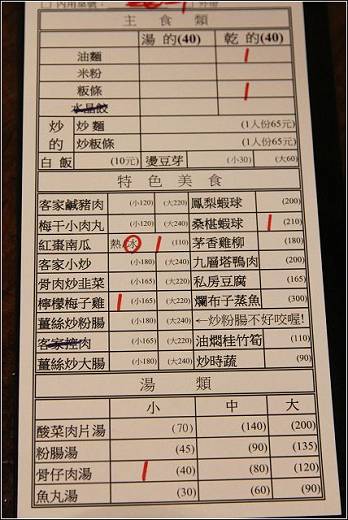 主食類
湯的(40) 乾的(40)
油麵
米粉
粄條
水晶餃
炒的 炒麵 (1人份65元)
炒粄條 (1人份65元)
白飯 (10元) 燙豆芽 (小30) (大60)
特色美食
客家鹹豬肉 (小120) (大220) 鳳梨蝦球 (200)
梅干小肉丸 (小120) (大240) 桑椹蝦球 (210)
紅棗南瓜 熱 冰 (110) 茅香雞柳 (180)
客家小炒 (小180) (大240) 九層塔鴨肉 (220)
骨肉炒韭菜 (小165) (大220) 私房豆腐 (165)
檸檬梅子雞 (小165) (大220) 爛布子蒸魚 (300)
薑絲炒粉腸 (小180) (大240) ←炒粉腸不好咬喔!
客家控肉 (小165) (大220) 油燜桂竹筍 (110)
薑絲炒大腸 (小180) (大240) 炒時蔬 (90)
湯類
小 中 大
酸菜肉片湯 (70) (140) (200)
粉腸湯 (45) (90) (135)
骨仔肉湯 (40) (80) (120)
魚丸湯 (30) (60) (90)